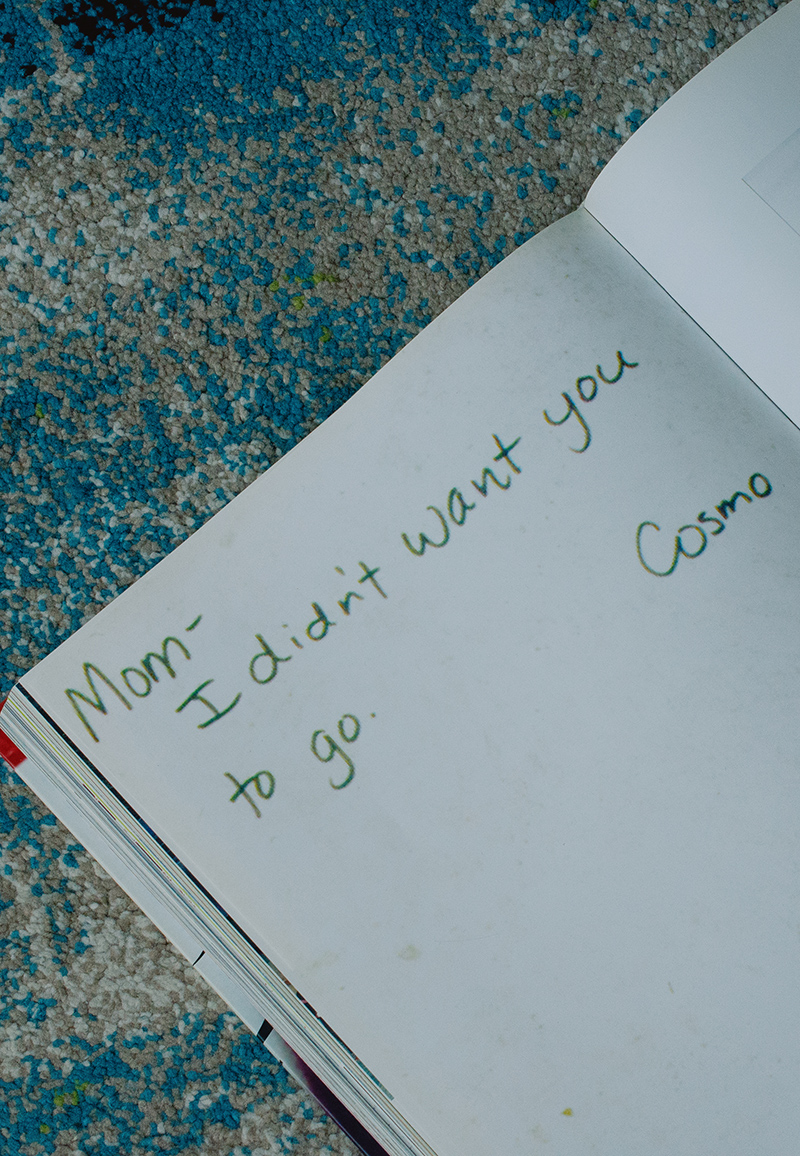 Mom-
I didn't want you
to go.
Cosmo